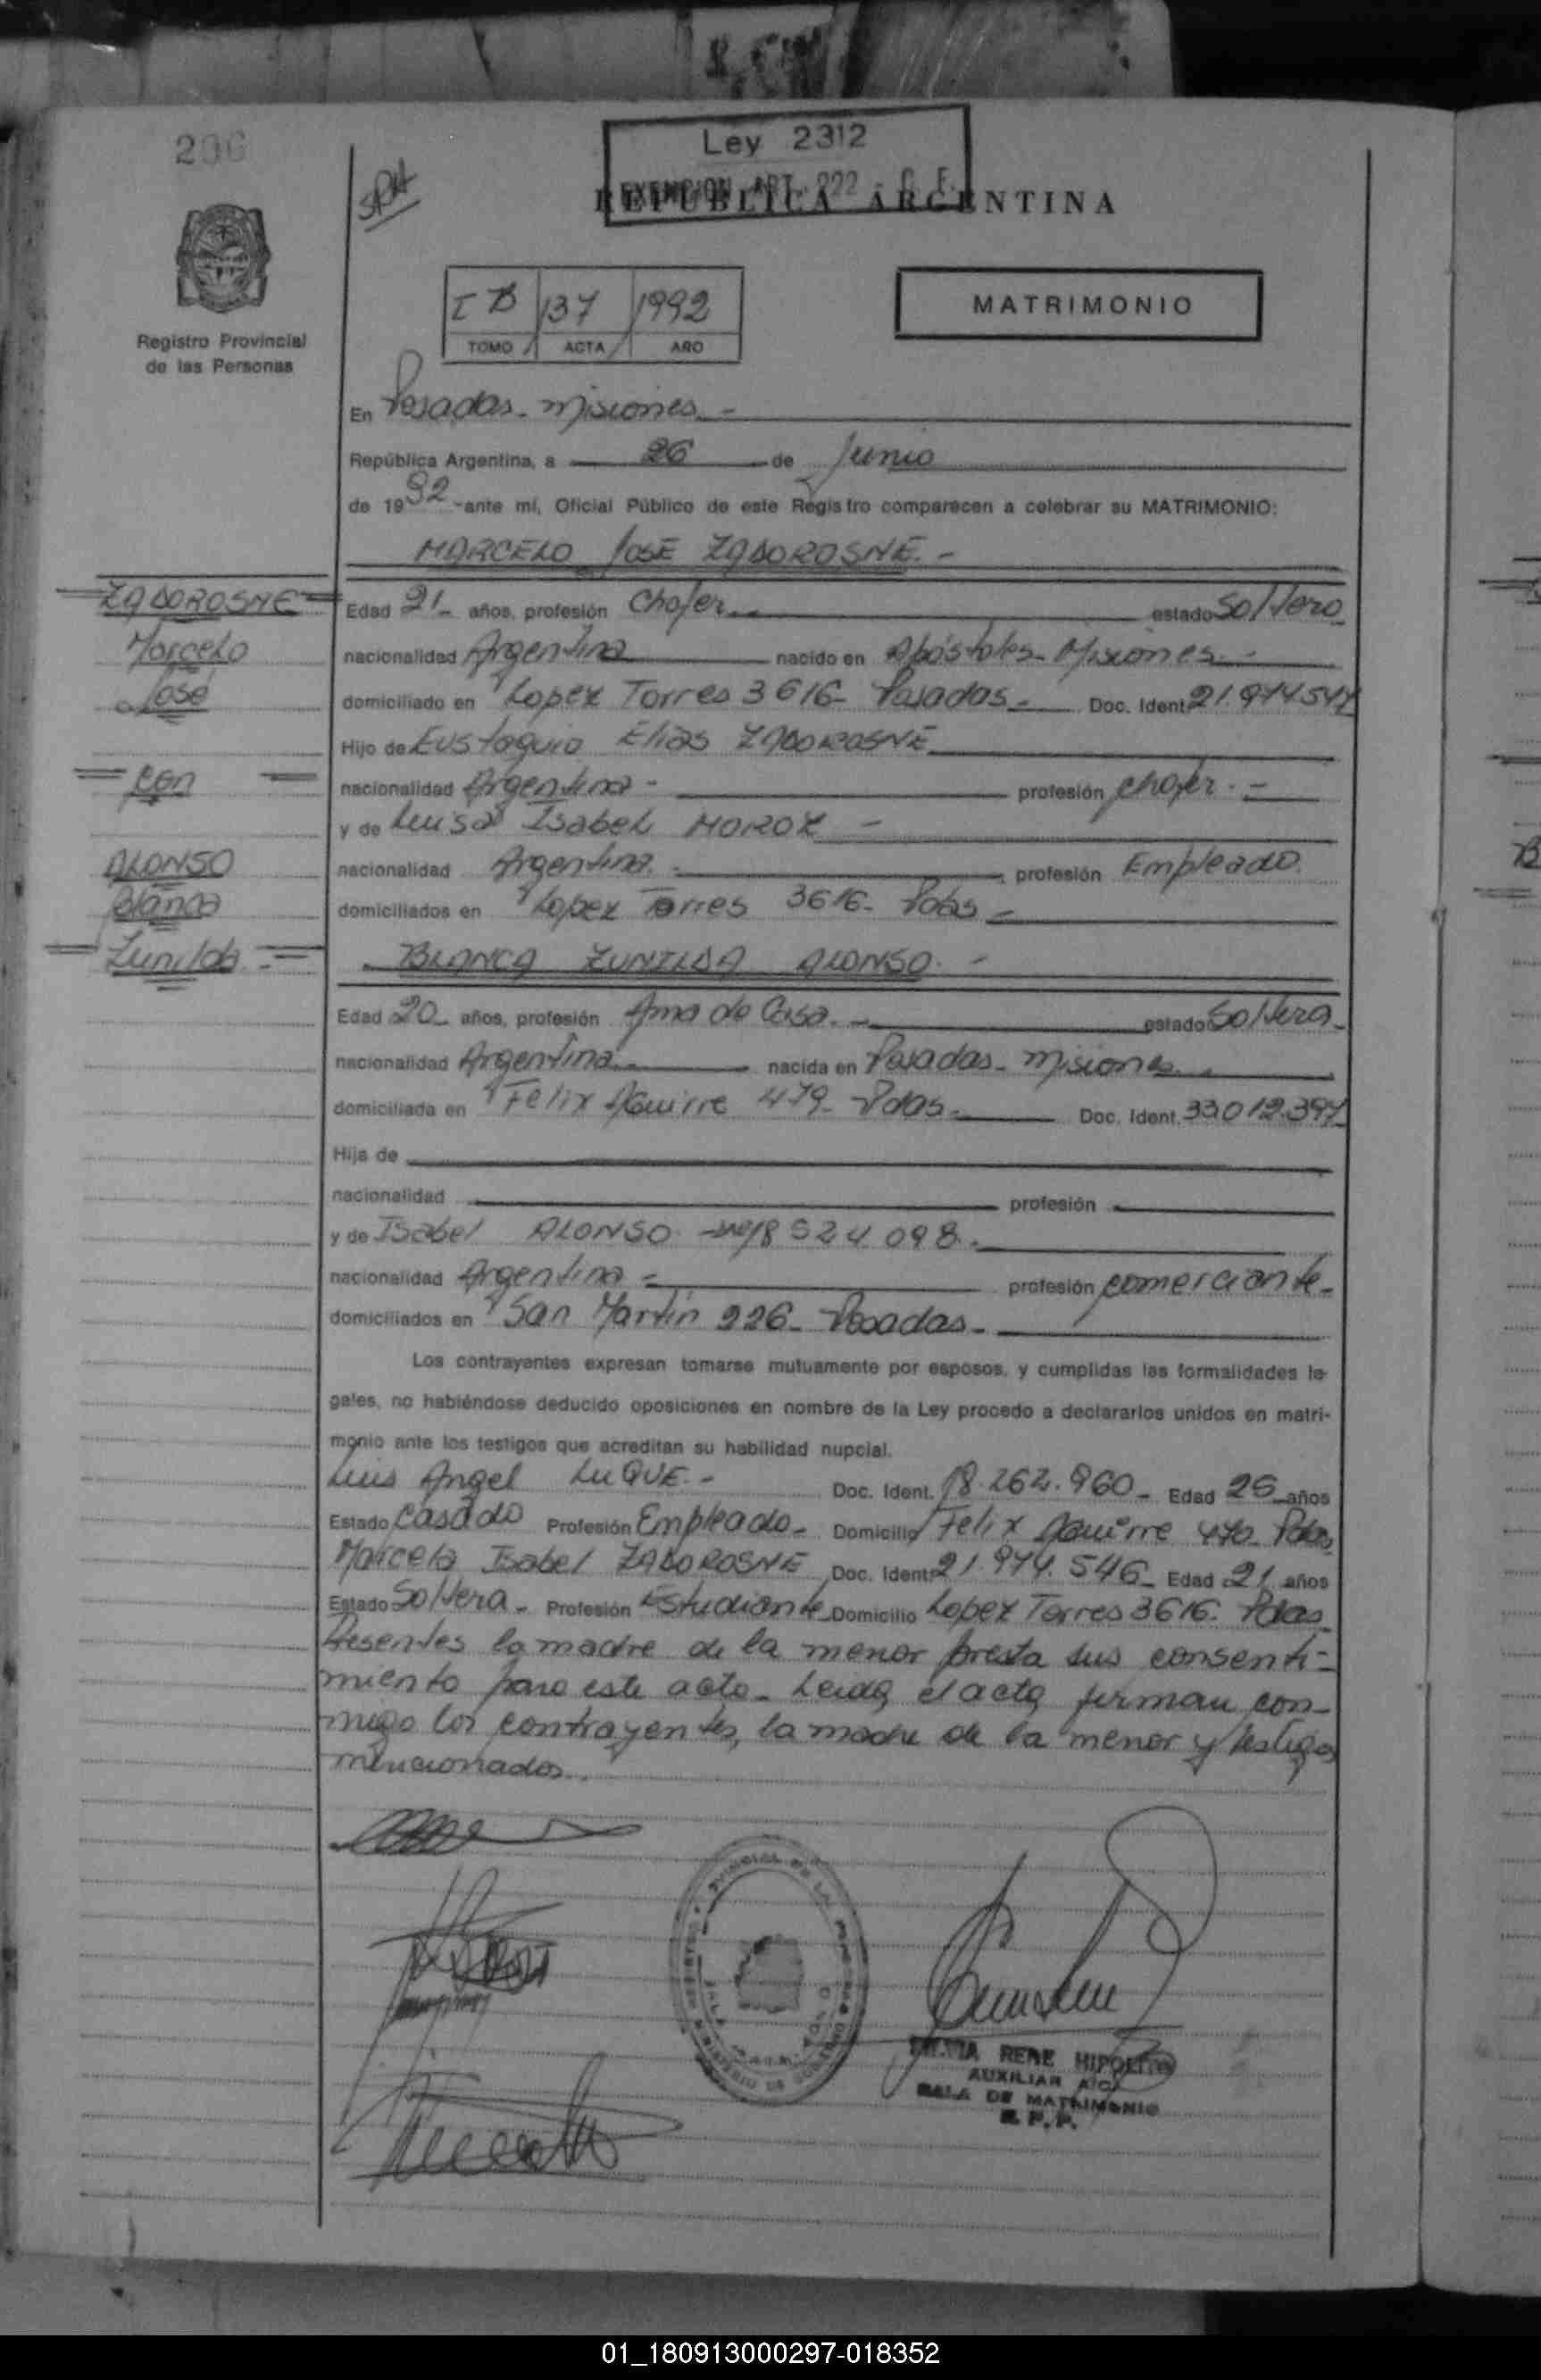 206
Ley 2312
EXENCION ART. 222 - C. F.
REPUBLICA ARGENTINA
Registro Provincial
de las Personas
I B 137 1992
TOMO ACTA AÑO
MATRIMONIO
En Posadas - Misiones -
República Argentina, a 26 de Junio
de 1992 - ante mí, Oficial Público de este Registro comparecen a celebrar su MATRIMONIO:
MARCELO JOSE ZADOROSNE. -
ZADOROSNE
Marcelo
José
con
ALONSO
Blanca
Zunilda
Edad 21 - años, profesión Chofer estado Soltero
nacionalidad Argentina nacido en Apóstoles - Misiones -
domiciliado en Lopez Torres 3616 - Posadas - Doc. Ident. 21.974.547
Hijo de Eustaquio Elias ZADOROSNE
nacionalidad Argentina - profesión chofer. -
y de Luisa Isabel MOROZ -
nacionalidad Argentina. - profesión Empleado.
domiciliados en Lopez Torres 3616 - Pdas -
BLANCA ZUNILDA ALONSO. -
Edad 20 - años, profesión Ama de Casa. - estado Soltera -
nacionalidad Argentina. - nacida en Posadas - Misiones -
domiciliada en Felix Aguirre 479 - Pdas. - Doc. Ident. 33.012.397
Hija de
nacionalidad profesión
y de Isabel ALONSO 8524098. -
nacionalidad Argentina - profesión comerciante -
domiciliados en San Martín 226 - Posadas -
Los contrayentes expresan tomarse mutuamente por esposos, y cumplidas las formalidades le-
gales, no habiéndose deducido oposiciones en nombre de la Ley procedo a declararlos unidos en matri-
monio ante los testigos que acreditan su habilidad nupcial.
Luis Angel LUQUE. - Doc. Ident. 18.262.960 - Edad 25 años
Estado Casado Profesión Empleado - Domicilio Felix Aguirre 470 Pdas
Marcela Isabel ZADOROSNE Doc. Ident. 21.974.546 - Edad 21 años
Estado Soltera - Profesión Estudiante Domicilio Lopez Torres 3616. Pdas
Presentes la madre de la menor presta sus consenti-
miento para este acto - Leida el acta firman con-
migo los contrayentes, la madre de la menor y testigos
mencionados.
RENE HIPOLITO
AUXILIAR
SALA DE MATRIMONIO
R. P. P.
01_180913000297-018352